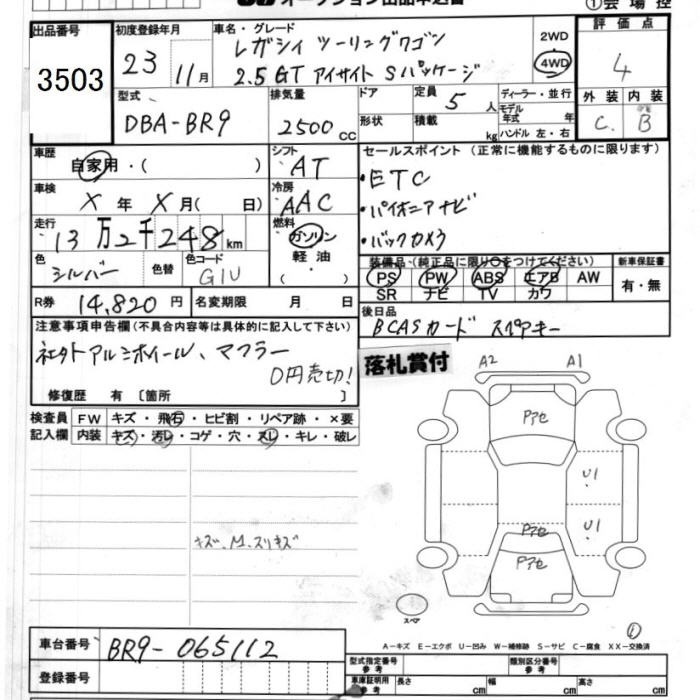 オークション出品申込書 ①会場控
出品番号 初度登録年月 車名・グレード 評価点
3503 23 11月 レガシィ ツーリングワゴン 2WD
2.5GT アイサイト Sパッケージ 4WD 4
型式 排気量 ドア 定員 5人 ディーラー・並行 外装 内装
DBA-BR9 2500cc 形状 積載 kg モデル年式 年 ハンドル 左・右 C B
車歴 自家用・( ) シフト AT セールスポイント(正常に機能するものに限ります)
車検 X年 X月( 日) 冷房 AAC ・ETC
・パイオニアナビ
走行 13万2千248km 燃料 ガソリン 軽油 ・バックカメラ
色 シルバー 色替 色コード G1U 装備品(純正品に限り○をつけてください) 新車保証書
PS PW ABS エアB AW 有・無
SR ナビ TV カワ
R券 14,820円 名変期限 月 日 後日品
BCASカード スペアキー
注意事項申告欄(不具合内容等は具体的に記入して下さい)
社外アルミホイール、マフラー
0円売切! 落札賞付
修復歴 有 〔箇所 〕
検査員 FW キズ・飛石・ヒビ割・リペア跡・×要
記入欄 内装 キズ・汚レ・コゲ・穴・スレ・キレ・破レ
キズ、M、スリキズ
A2 A1
Pアセ
U1
U1
Pアセ
Pアセ
スペア
①
A-キズ E-エクボ U-凹み W-補修跡 S-サビ C-腐食 XX-交換済
車台番号 BR9-065112
登録番号
型式指定番号 参考 類別区分番号 参考
車庫証明用 参考 長さ cm 幅 cm 高さ cm